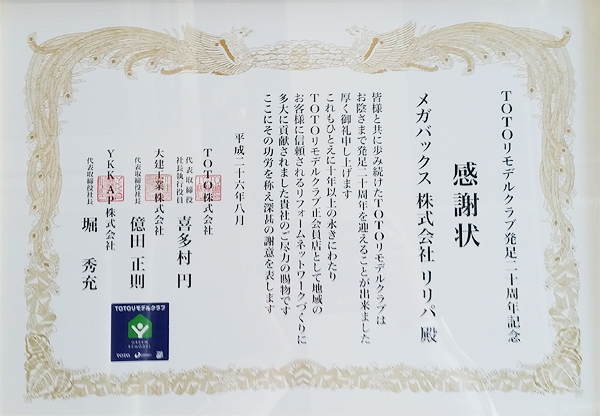 TOTOリモデルクラブ発足二十周年記念
感謝状
メガバックス 株式会社 リリパ 殿
皆様と共に歩み続けたTOTOリモデルクラブは
お陰さまで発足二十周年を迎えることが出来ました
厚く御礼申し上げます
これもひとえに十年以上の永きにわたり
TOTOリモデルクラブ正会員店として地域の
お客様に信頼されるリフォームネットワークづくりに
多大に貢献されました貴社のご尽力の賜物です
ここにその功労を称え深甚の謝意を表します
平成二十六年八月
TOTO株式会社
代表取締役
社長執行役員
喜多村 円
大建工業株式会社
代表取締役社長
億田 正則
YKK AP株式会社
代表取締役社長
堀 秀充
TOTOリモデルクラブ
GREEN
REMODEL
TOTO